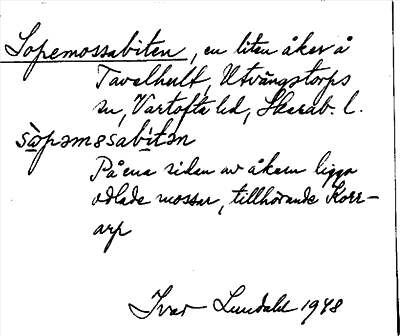 Sopemossabiten, en liten åker å
Tavelhult, Utvängstorps
sn, Vartofta hd, Skarab. l.
sò̱pəmɜsabi̱tən
På ena sidan av åkern ligga
odlade mossar, tillhörande Korr-
arp
Ivar Lundahl 1948